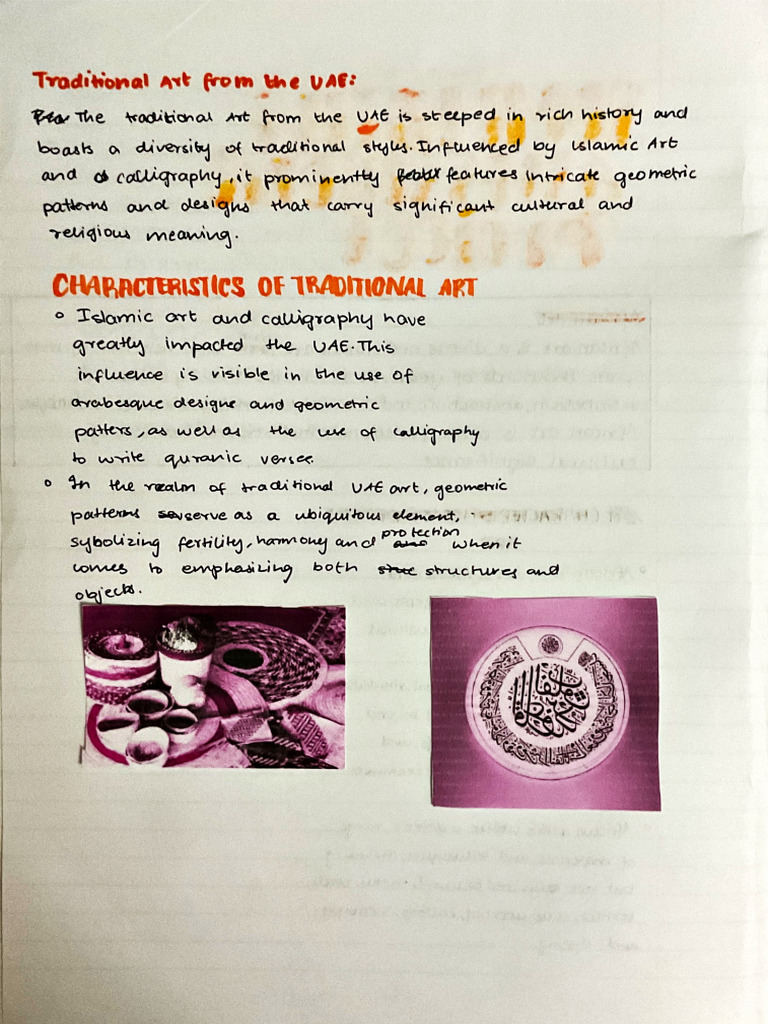 Traditional Art from the UAE:
The traditional Art from the UAE is steeped in rich history and
boasts a diversity of traditional styles. Influenced by Islamic Art
and calligraphy, it prominently features intricate geometric
patterns and designs that carry significant cultural and
religious meaning.
CHARACTERISTICS OF TRADITIONAL ART
Islamic art and calligraphy have
greatly impacted the UAE. This
influence is visible in the use of
arabesque designs and geometric
patters, as well as the use of calligraphy
to write quranic verses
In the realm of traditional UAE art, geometric
patterns serve as a ubiquitous element,
sybolizing fertility, harmony and protection when it
comes to emphasizing both structures and
objects.